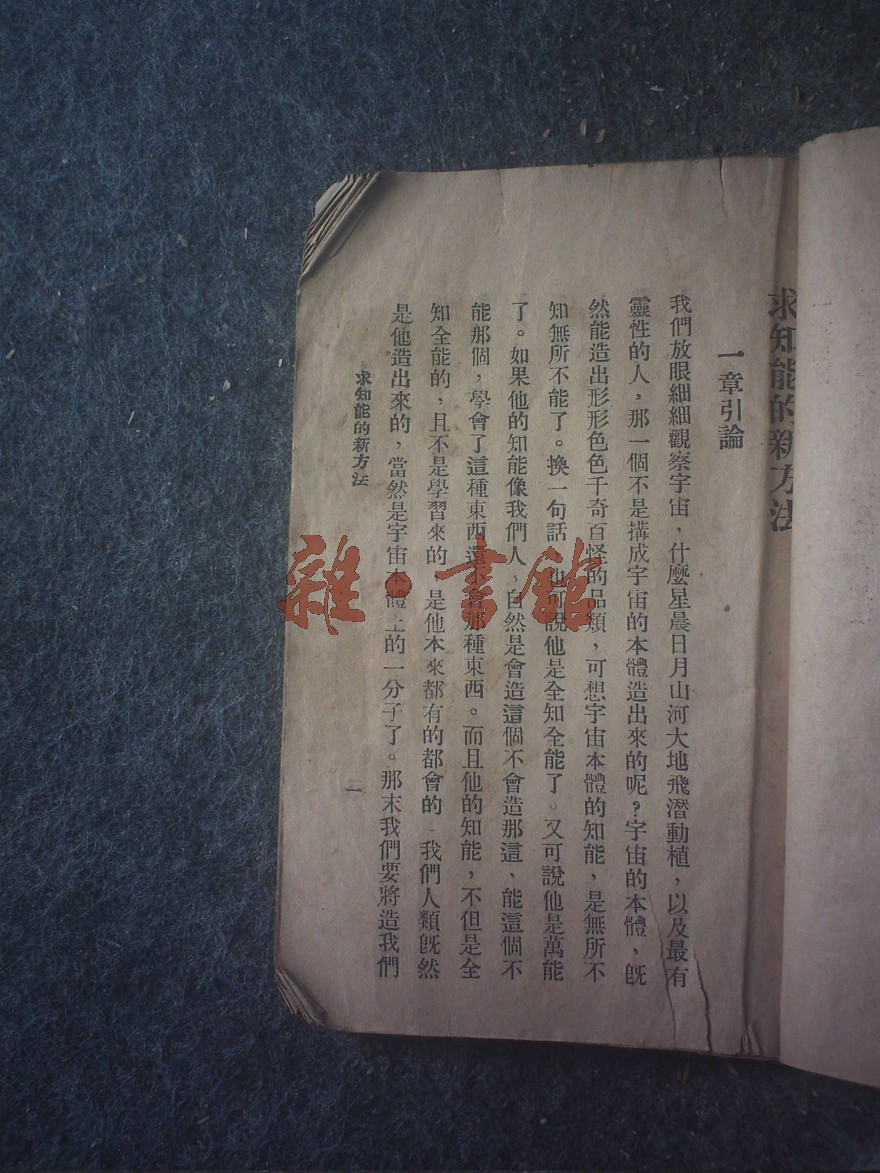 求知能的新方法
一章引論
我們放眼細細觀察宇宙，什麼星晨日月山河大地飛潛動植，以及最有
靈性的人，那一個不是搆成宇宙的本體造出來的呢？宇宙的本體，旣
然能造出形形色色千奇百怪的品類，可想宇宙本體的知能，是無所不
知無所不能了。換一句話，也可說他是全知全能了。又可說他是萬能
了。如果他的知能像我們人，自然是會造這個不會造那這、能這個不
能那個，學會了這種東西還不會那種東西。而且他的知能，不但是全
知全能的，且不是學習來的，是他本來都有的都會的，我們人類旣然
是他造出來的，當然是宇宙本體上的一分子了。那末我們要將造我們
求知能的新方法
一
雜·書館